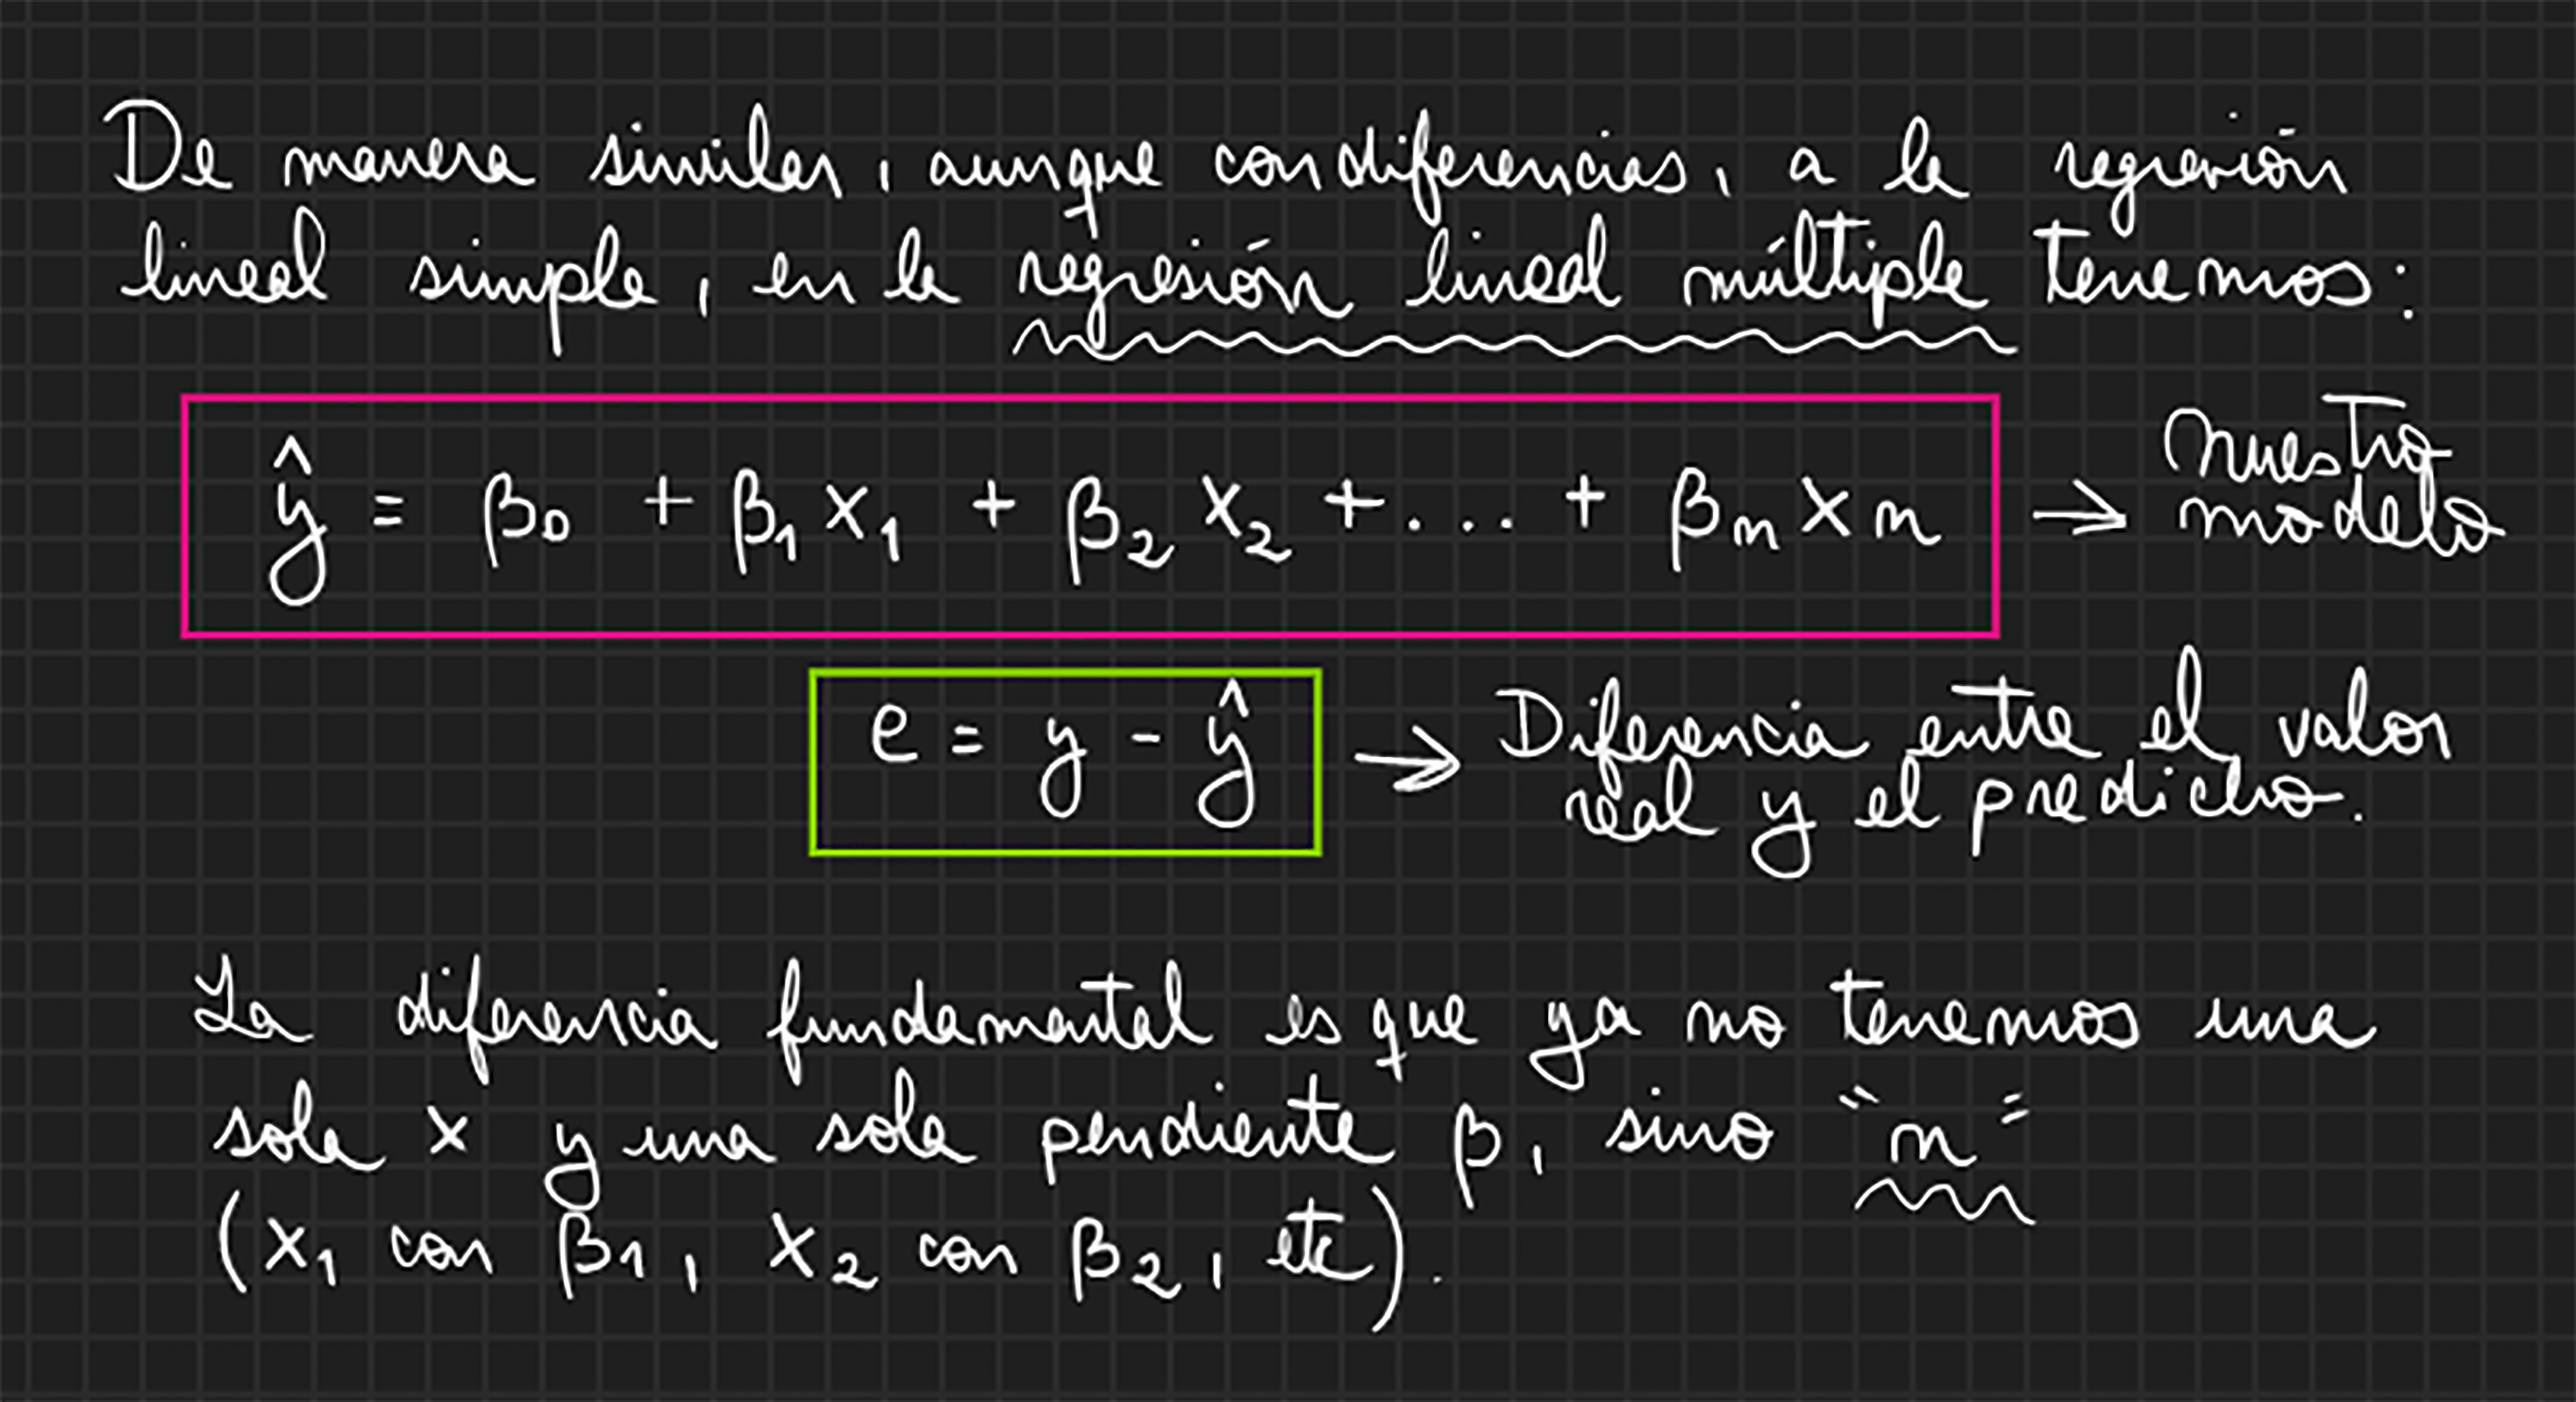 De manera similar, aunque con diferencias, a la regresión
lineal simple, en la regresión lineal múltiple tenemos:
ŷ = β₀ + β₁ x₁ + β₂ x₂ + ... + βₙ xₙ → Nuestro modelo
e = y - ŷ → Diferencia entre el valor
real y el predicho.
La diferencia fundamental es que ya no tenemos una
sola x y una sola pendiente β, sino "n"
(x₁ con β₁, x₂ con β₂, etc).